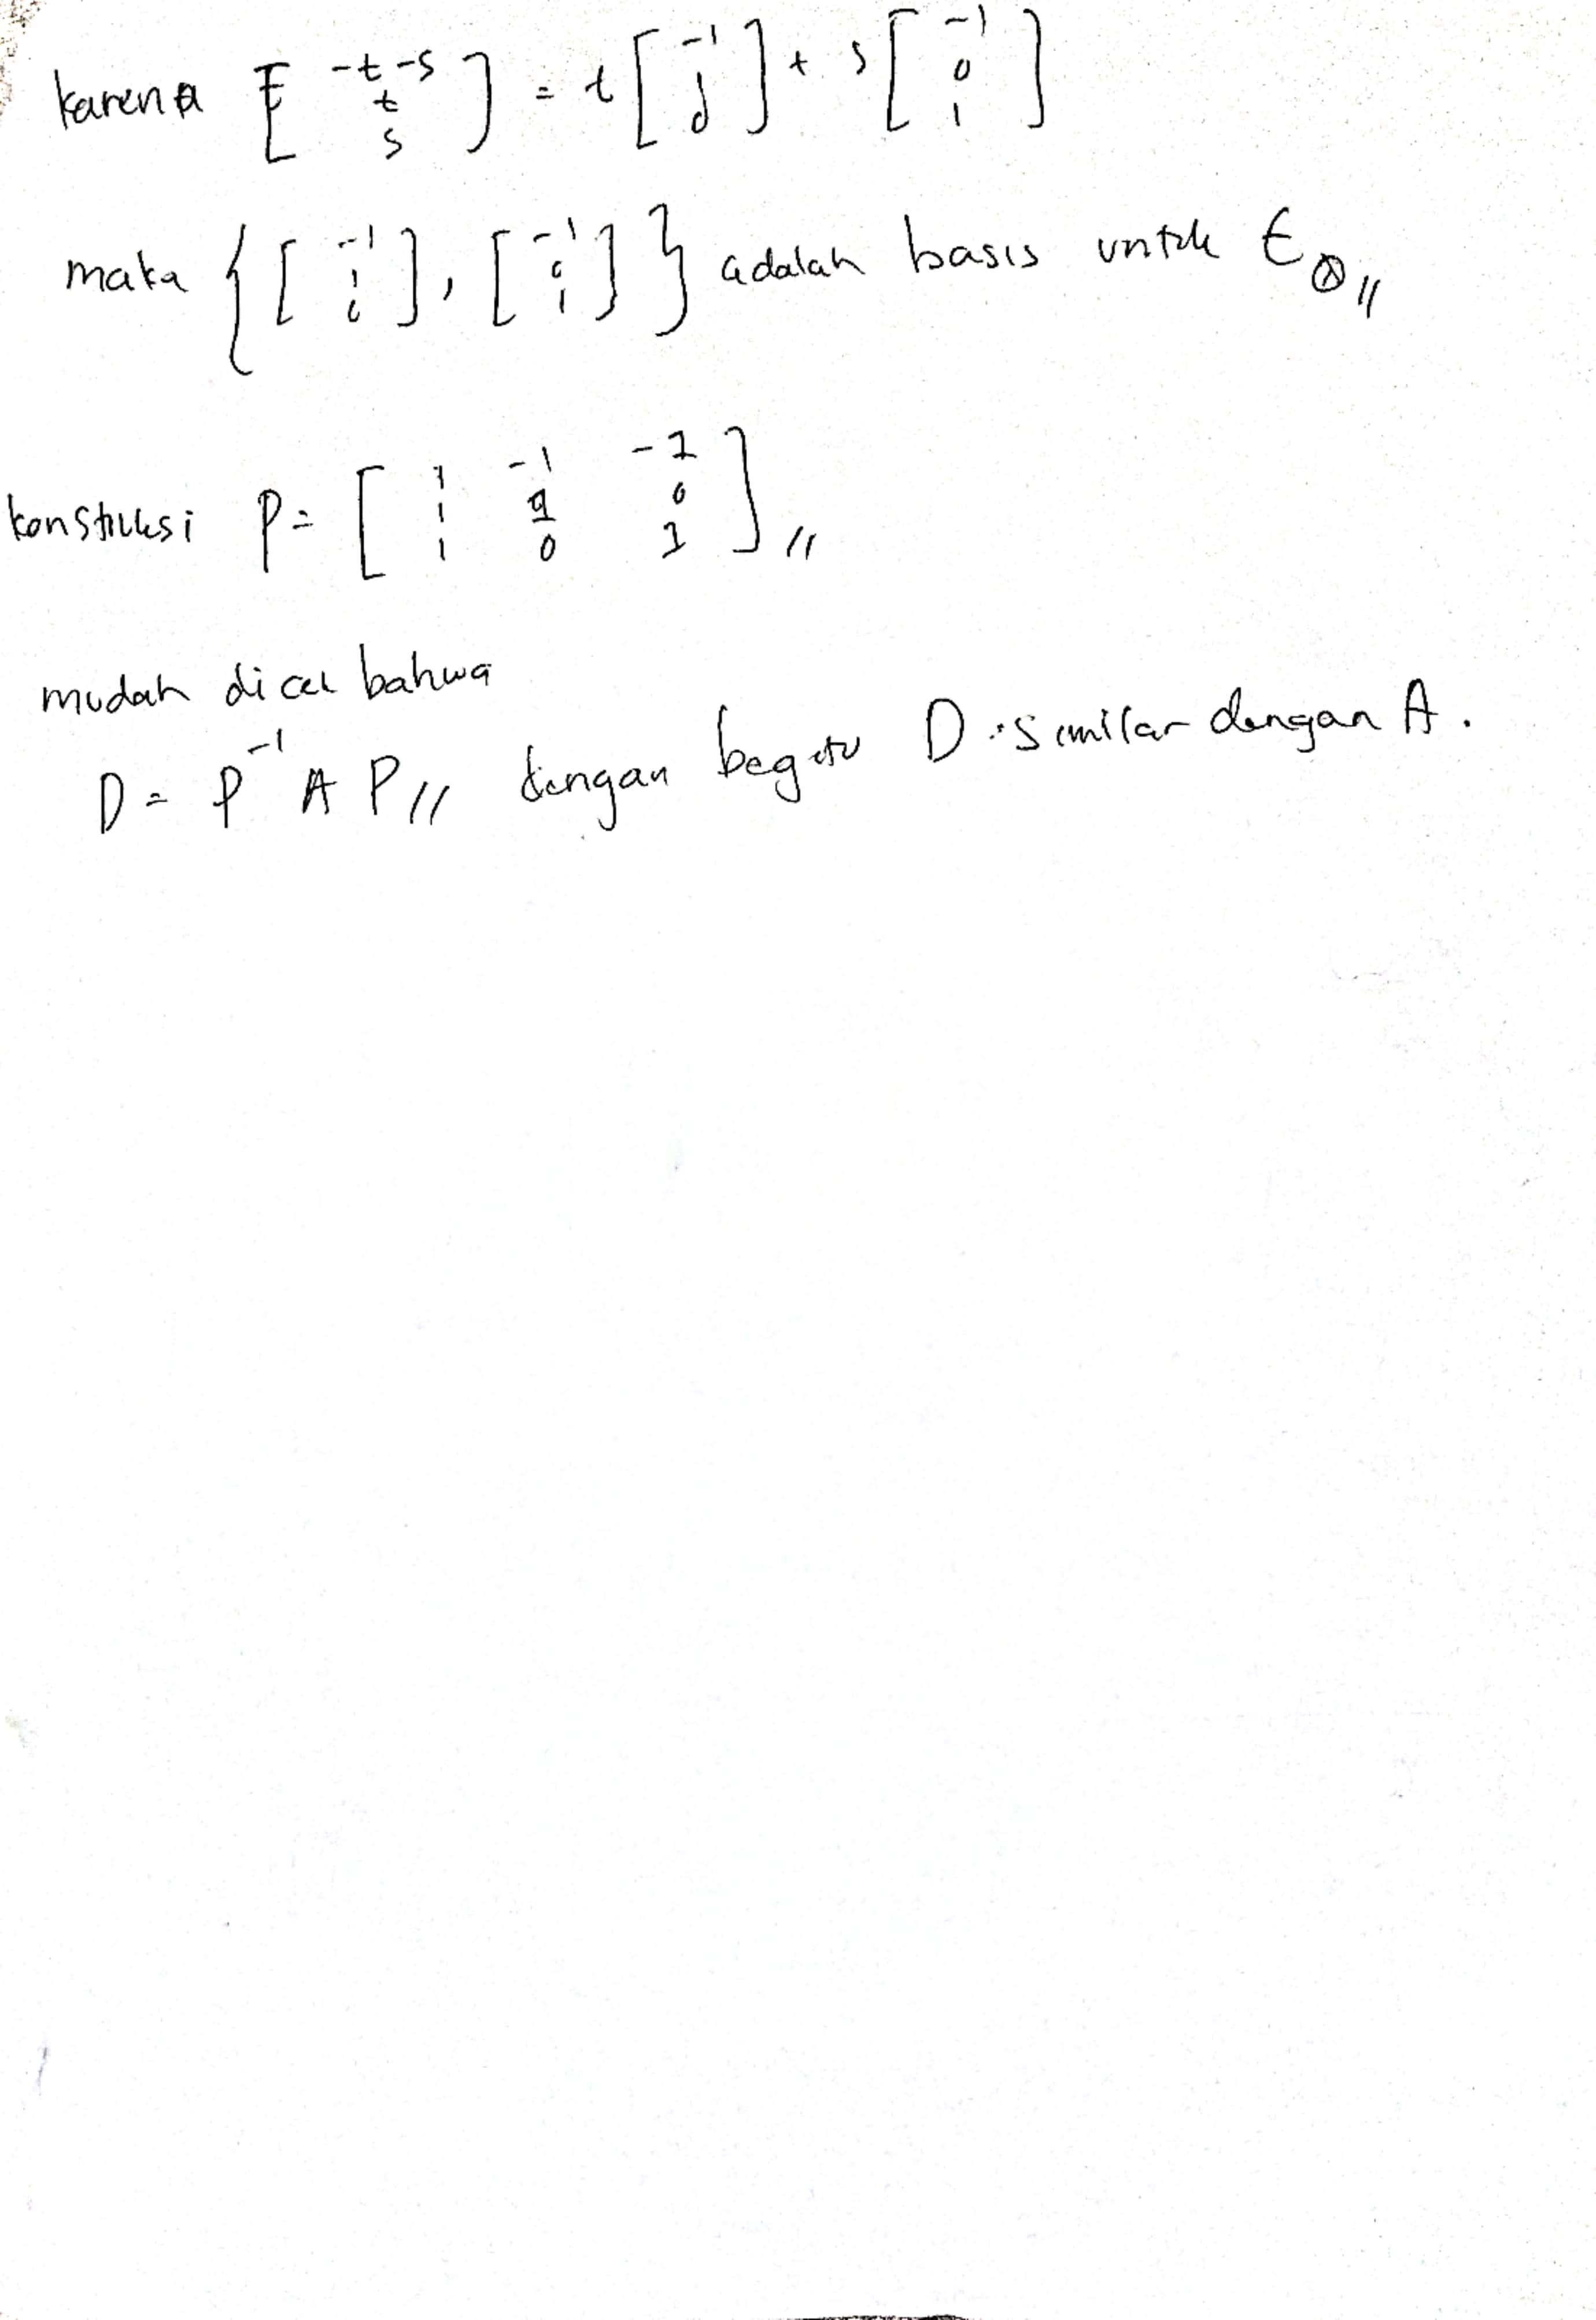 karena [ -t-s t s ] = t [ -1 1 0 ] + s [ -1 0 1 ]
maka { [ -1 1 0 ], [ -1 0 1 ] } adalah basis untuk E //
konstruksi P = [ 1 -1 -1
1 1 0
1 0 1 ] //
mudah dicek bahwa
D = P⁻¹ A P // dengan begitu D similar dengan A.